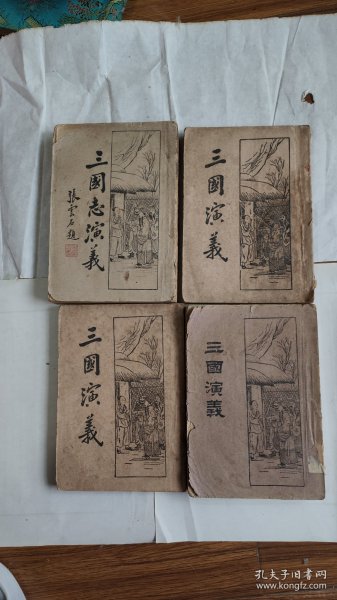 三國志演義
張雲石題
三國演義
三國演義
三國演義
孔夫子旧书网